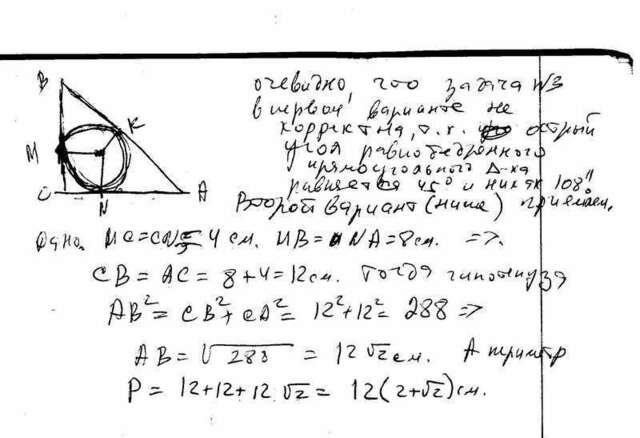 B
K
M
C
N
A
очевидно, что задача №3
в первом варианте не
корректна, т.к. острый
угол равнобедренного
прямоугольного Δ-ка
равняется 45° и никак 108°.
Второй вариант (ниже) приемлем.
MC = CN = 4 см. MB = NA = 8 см. =>
CB = AC = 8 + 4 = 12 см. Тогда гипотенуза
AB² = CB² + CA² = 12² + 12² = 288 =>
AB = √288 = 12√2 см. А периметр
P = 12 + 12 + 12√2 = 12(2+√2) см.